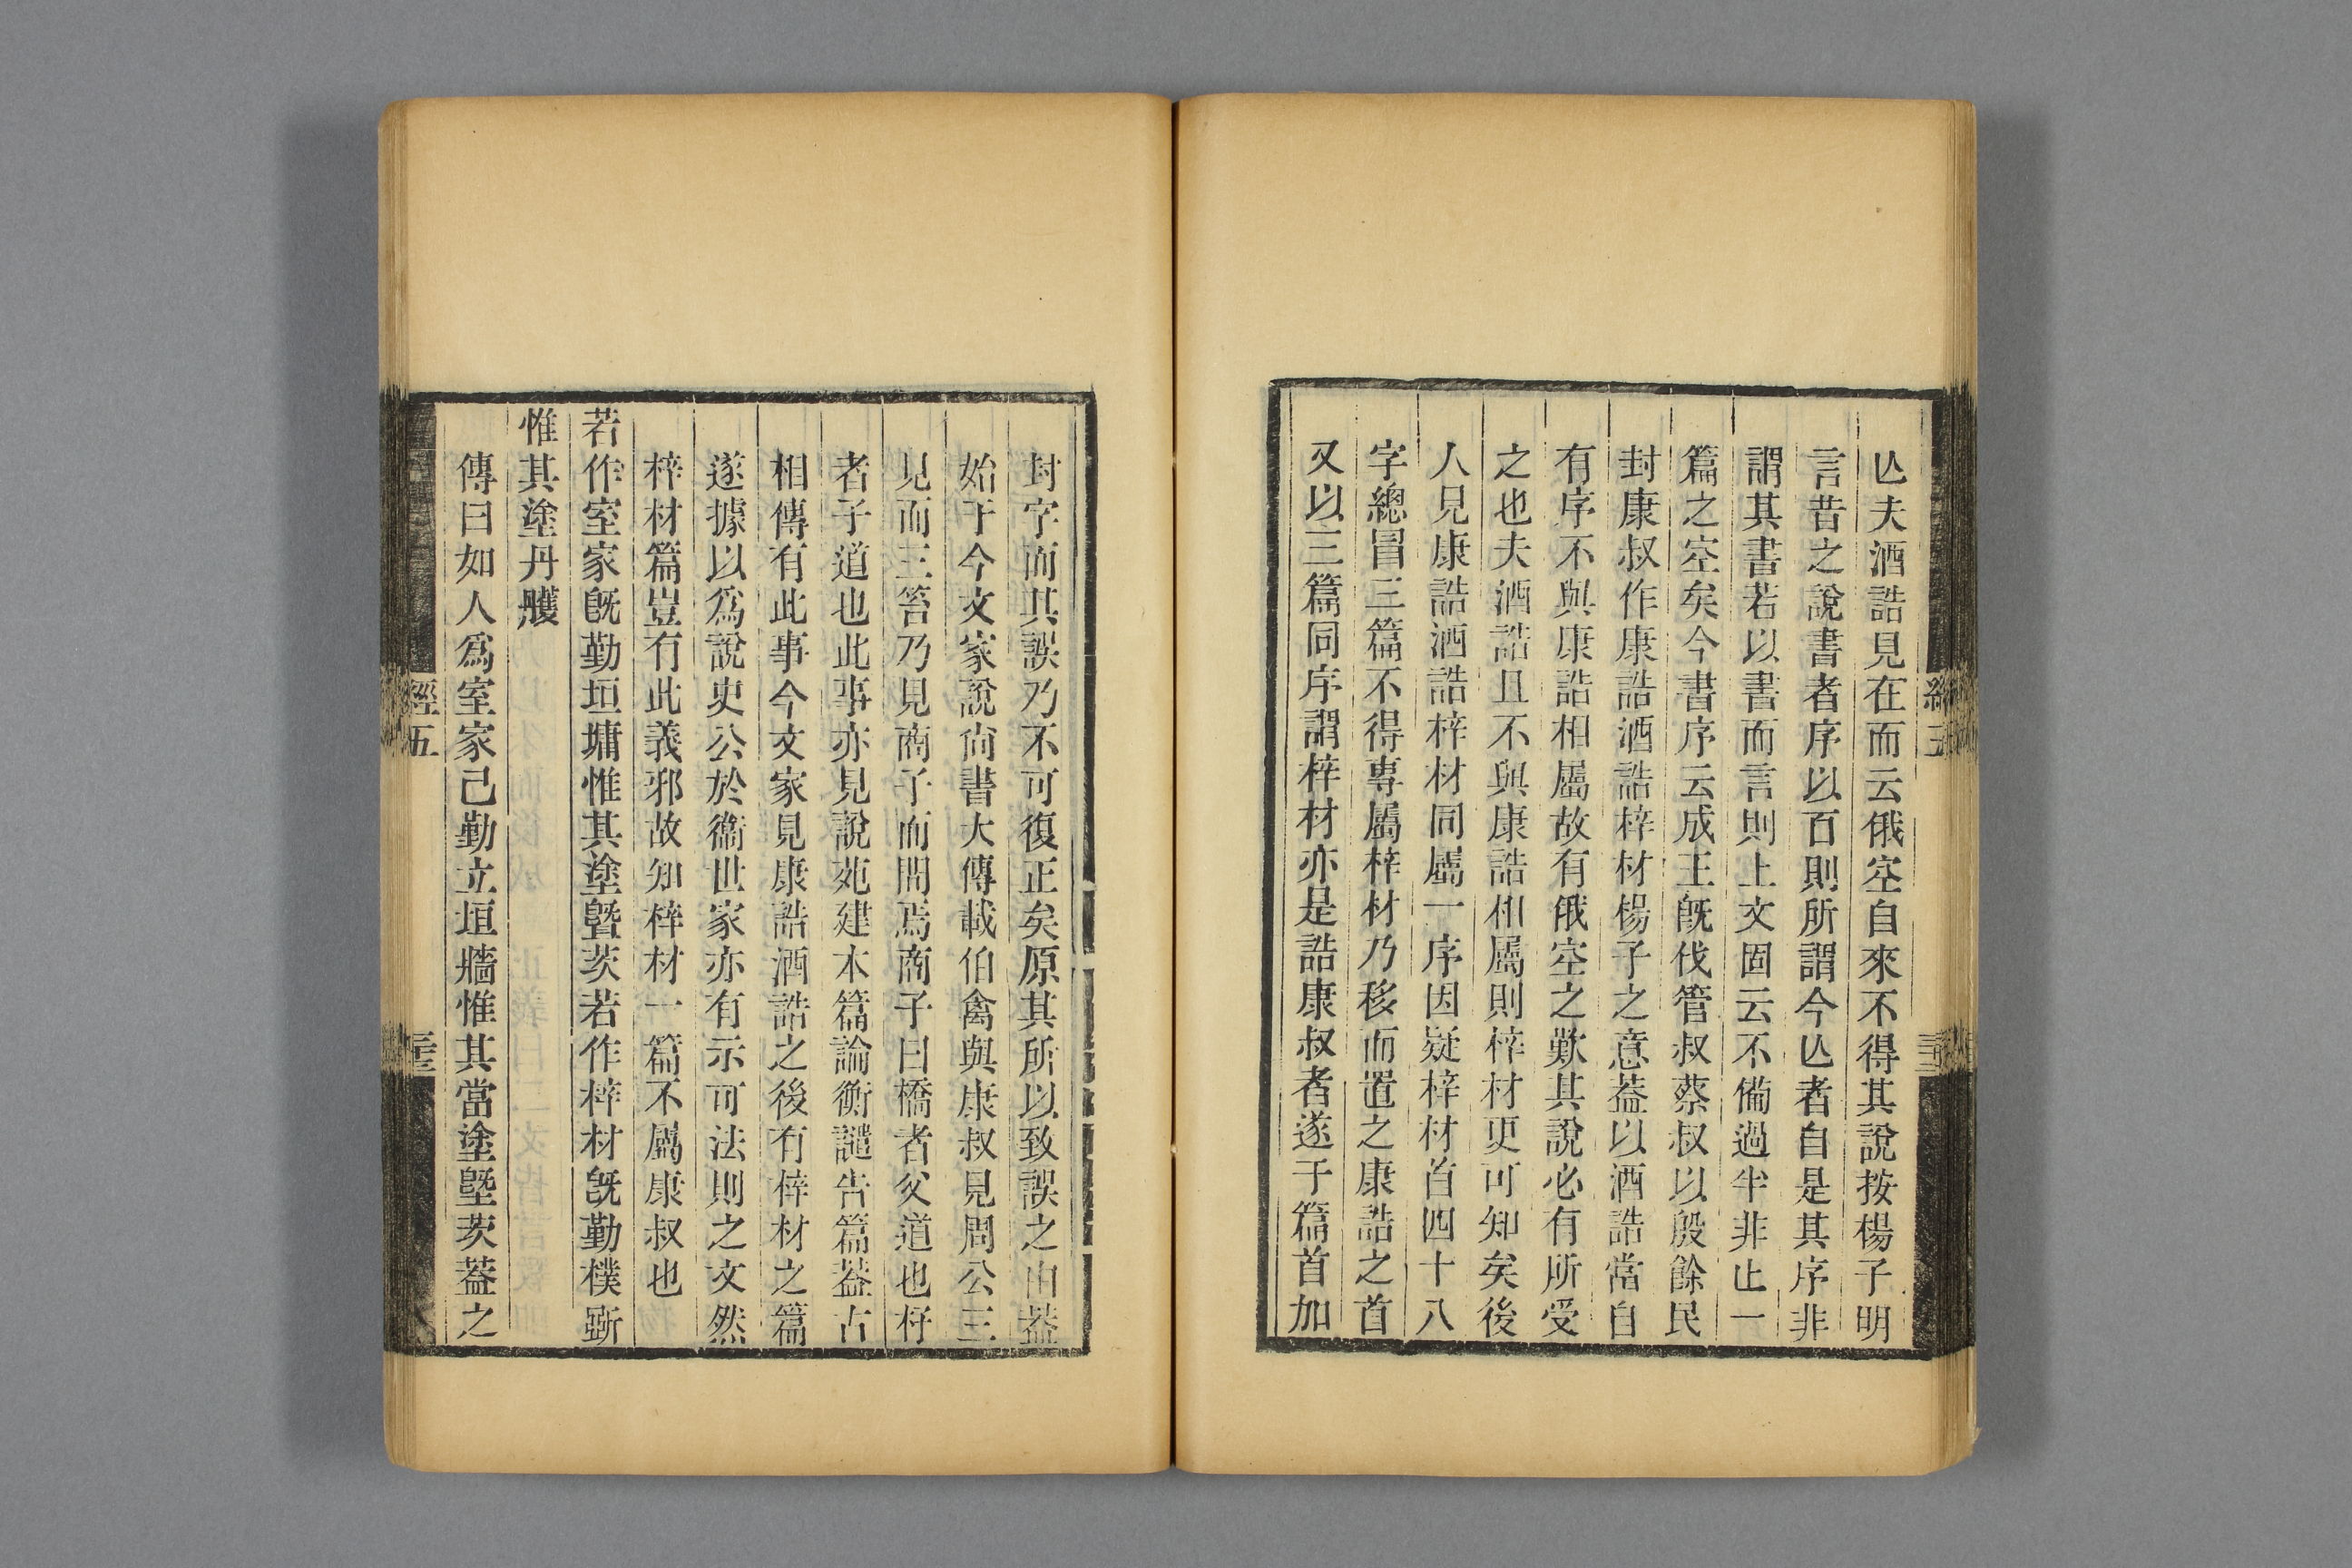 亾夫酒誥見在而云俄空自來不得其說按楊子明
言昔之說書者序以百則所謂今亾者自是其序非
謂其書若以書而言則上文固云不備過半非止一
篇之空矣今書序云成王旣伐管叔蔡叔以殷餘民
封康叔作康誥酒誥梓材楊子之意葢以酒誥當自
有序不與康誥相屬故有俄空之歎其說必有所受
之也夫酒誥且不與康誥相屬則梓材更可知矣後
人見康誥酒誥梓材同屬一序因疑梓材首四十八
字總冒三篇不得專屬梓材乃移而置之康誥之首
又以三篇同序謂梓材亦是誥康叔者遂于篇首加
封字而其誤乃不可復正矣原其所以致誤之由葢
始于今文家說尙書大傳載伯禽與康叔見周公三
見而三笞乃見商子而問焉商子曰橋者父道也杍
者子道也此事亦見說苑建本篇論衡譴告篇葢古
相傳有此事今文家見康誥酒誥之後有梓材之篇
遂據以爲說史公於衞世家亦有示可法則之文然
梓材篇豈有此義邪故知梓材一篇不屬康叔也
若作室家旣勤垣墉惟其塗曁茨若作梓材旣勤樸斲
惟其塗丹雘
傳曰如人爲室家已勤立垣牆惟其當塗塈茨葢之
經五